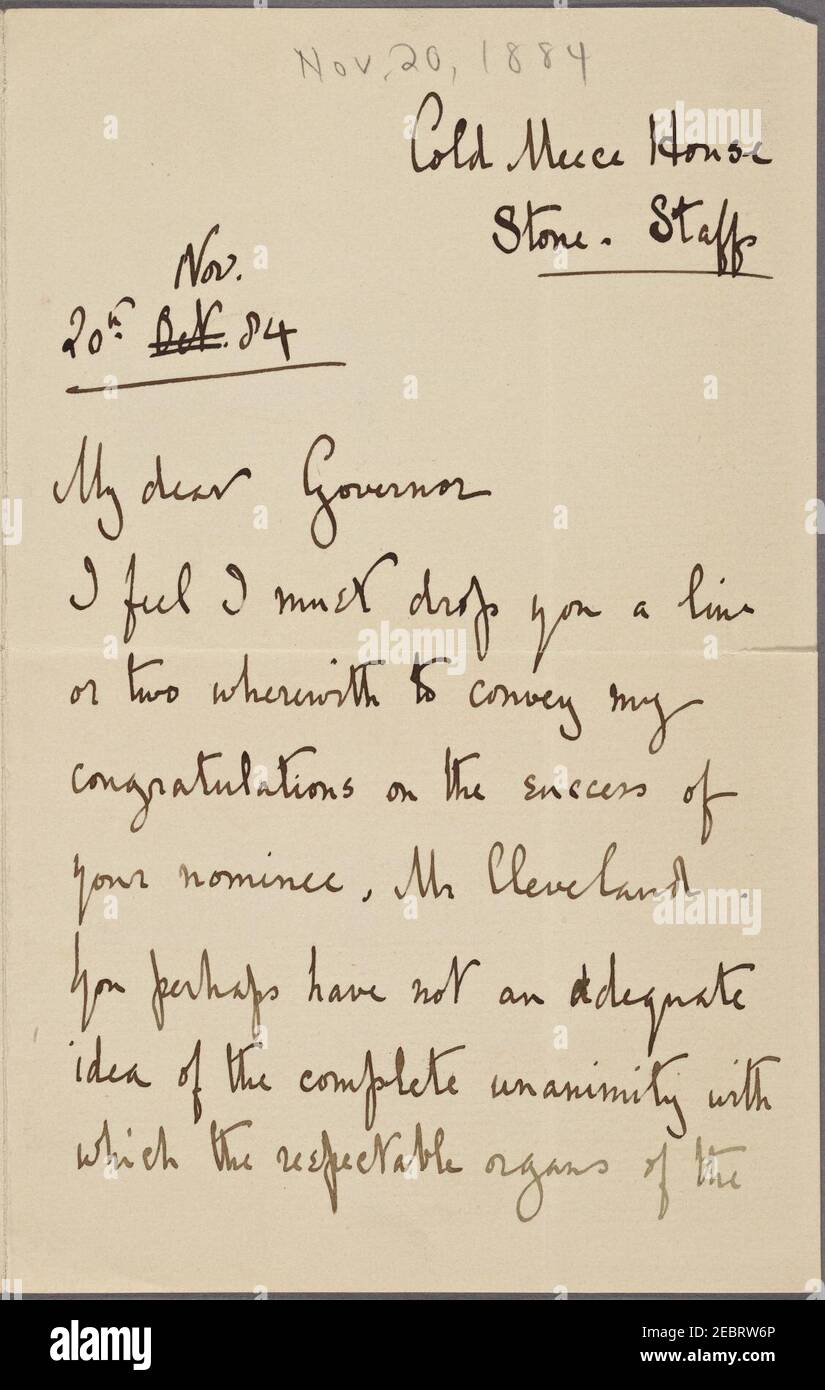 Nov. 20, 1884
Cold Meece House
Stone. Staffs
Nov.
20th Oct. 84
My dear Governor
I feel I must drop you a line
or two wherewith to convey my
congratulations on the success of
your nominee, Mr Cleveland.
You perhaps have not an adequate
idea of the complete unanimity with
which the respectable organs of the
alamy
alamy
Image ID: 2EBRW6P
www.alamy.com